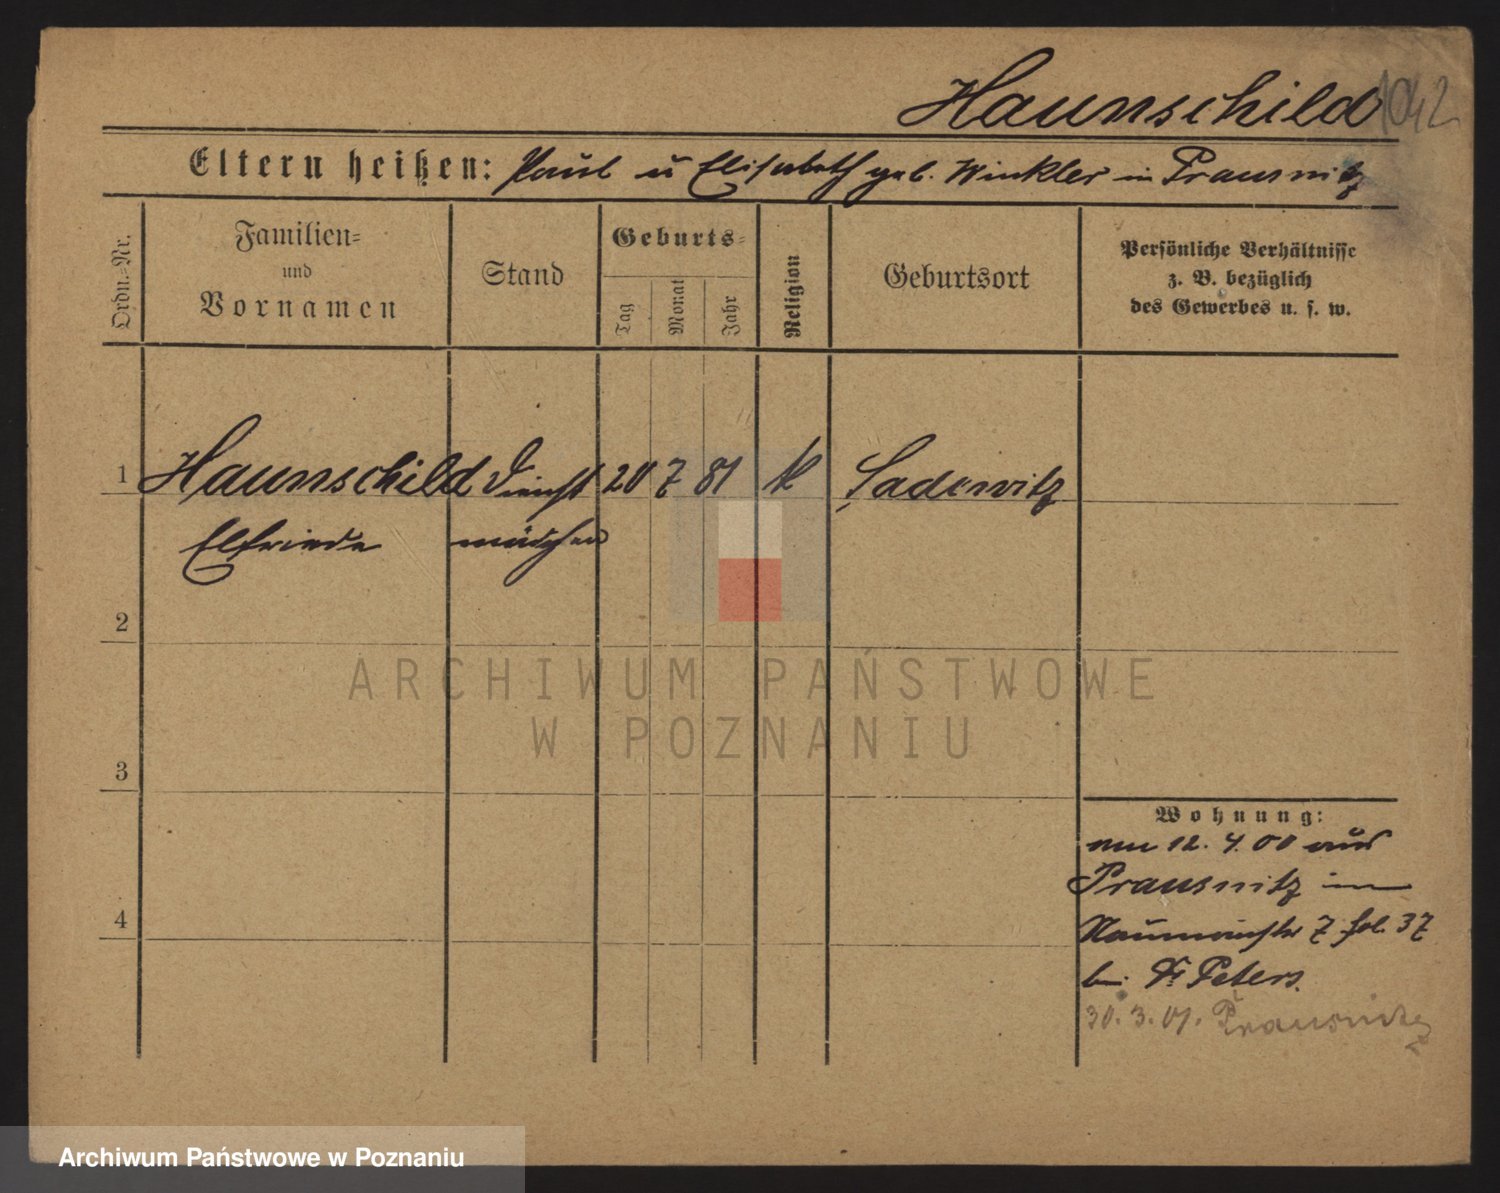 Haunschild 1042
Eltern heißen: Paul u Elisabeth geb. Winkler in Prausnitz
Ordn.-Nr.
Familien-
und
Vornamen
Stand
Geburts-
Tag
Monat
Jahr
Religion
Geburtsort
Persönliche Verhältnisse
z. B. bezüglich
des Gewerbes u. s. w.
1 Haunschild Dienst 20 7 81 k Sadewitz
Elfriede mädchen
2
3
4
Wohnung:
12. 4. 00 aus
Prausnitz in
Naumannstr 7 fol. 37
bei Fr Peters.
30. 3. 01. Prausnitz
ARCHIWUM PAŃSTWOWE
W POZNANIU
Archiwum Państwowe w Poznaniu